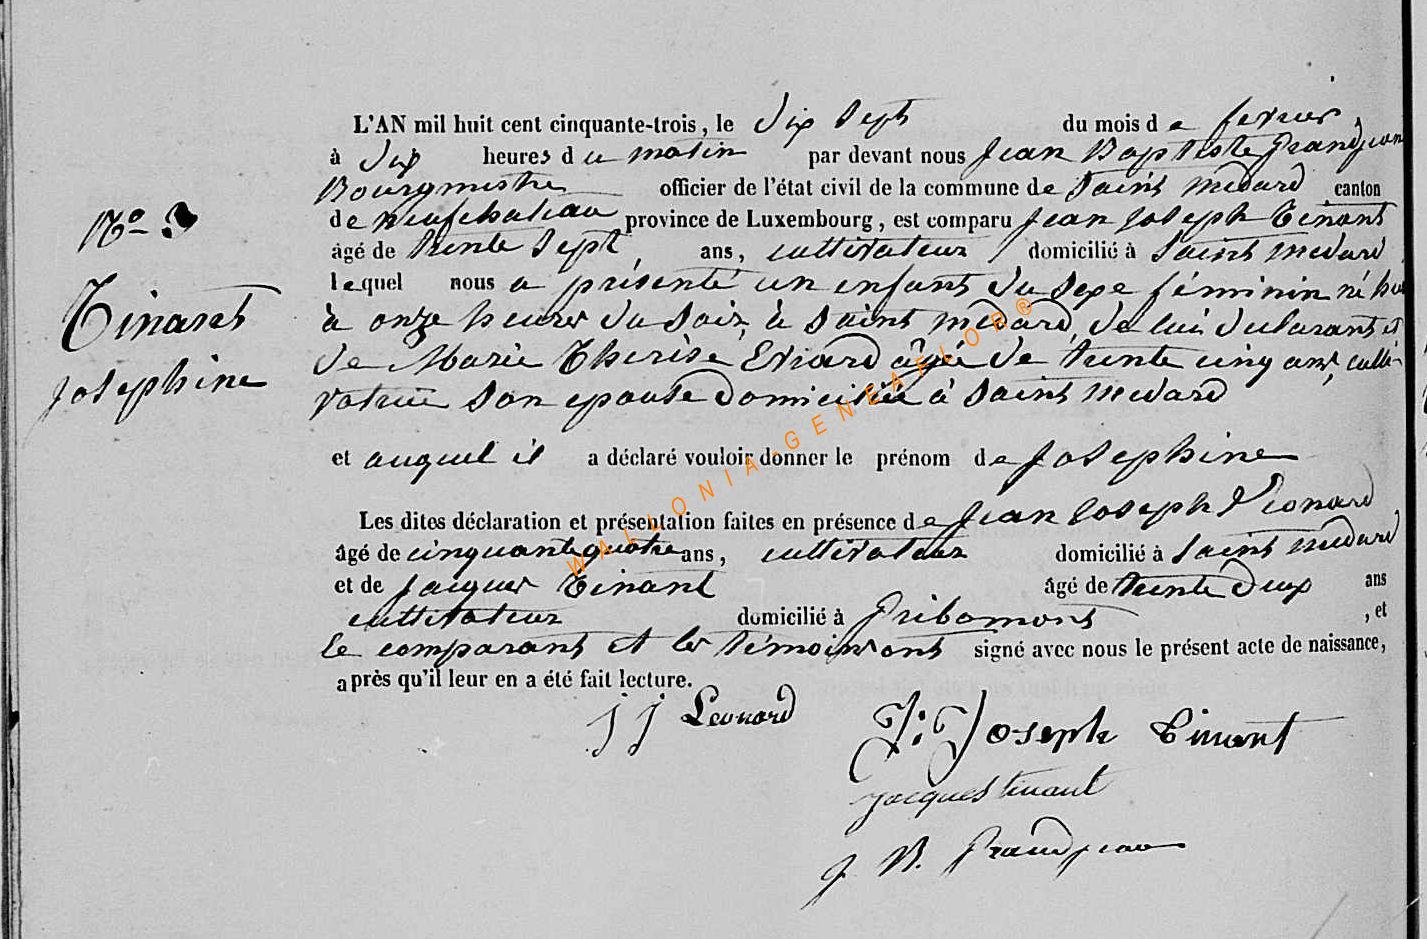 L'AN mil huit cent cinquante-trois, le dix sept du mois de fevrier,
à dix heures du matin par devant nous Jean Baptiste Grandjean
Bourgmestre officier de l'état civil de la commune de Saint Médard canton
de neufchateau province de Luxembourg, est comparu Jean Joseph Tinant
âgé de trente sept, ans, cultivateur domicilié à Saint medard
lequel nous a présenté un enfant du sexe féminin né hier
à onze heures du soir, à Saint médard, de lui déclarant et
de Marie Thérèse Evrard âgée de trente cinq ans, culti-
vatrice son epouse domiciliée à Saint medard
et auquel il a déclaré vouloir donner le prénom de Josephine
Les dites déclaration et présentation faites en présence de Jean Joseph Léonard,
âgé de cinquante quatre ans, cultivateur domicilié à Saint médard
et de Jacques Tinant âgé de trente deux ans
cultivateur domicilié à Gribomont, et
le comparant et les témoins ont signé avec nous le présent acte de naissance,
après qu'il leur en a été fait lecture.
No 3
Tinant
Josephine
j j Leonard
J: Joseph Tinant
jacques tinant
J. B. Grandjean
WALLONIA-GENEAFLOR®